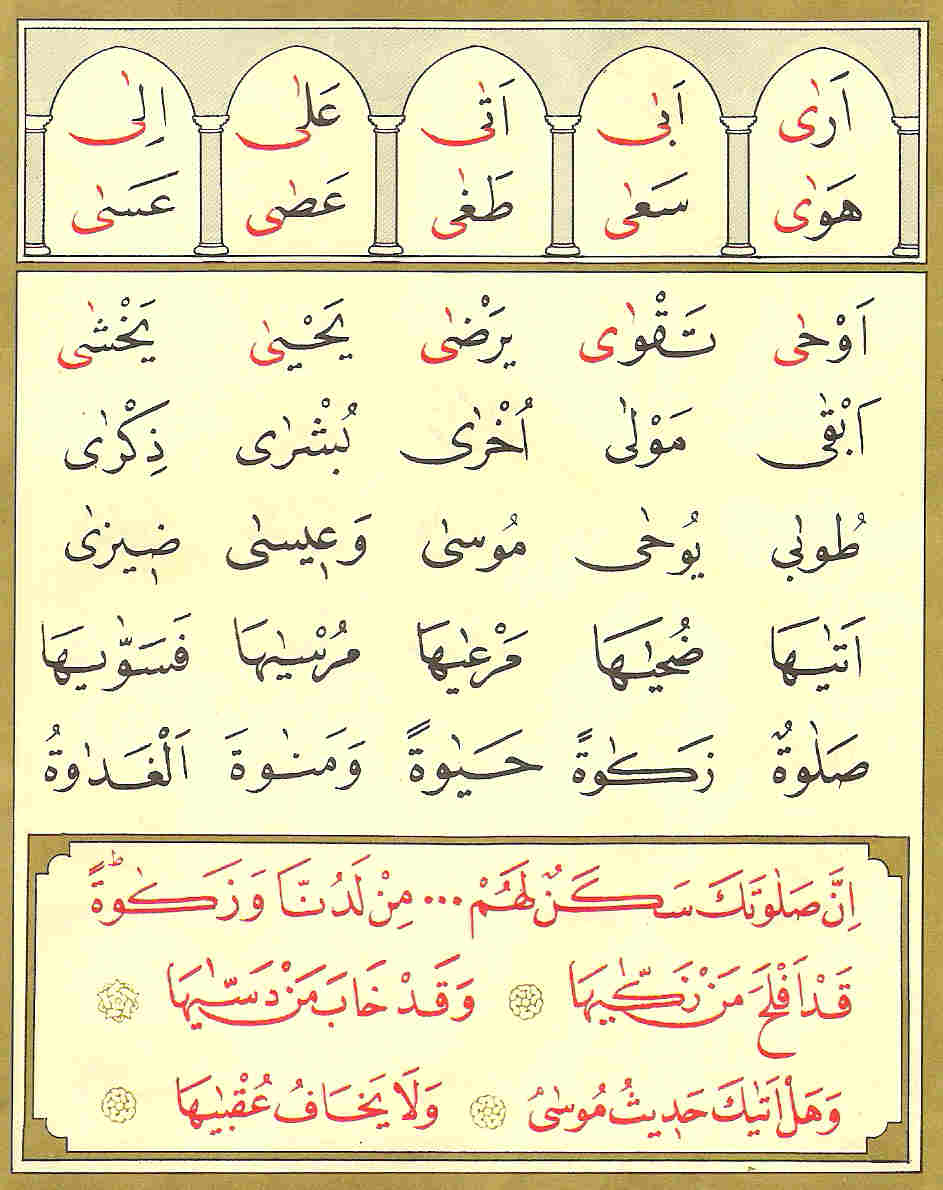 اَرٰى اَبٰى اَتٰى عَلٰى اِلٰى
هَوٰى سَعٰى طَغٰى عَصٰى عَسٰى
اَوْحٰى تَقْوٰى يَرْضٰى يَحْيٰى يَخْشٰى
اَبْقٰى مَوْلٰى اُخْرٰى بُشْرٰى ذِكْرٰى
طُوبٰى يُوحٰى مُوسٰى وَعٖيسٰى ضٖيزٰى
اَتٰيهَا ضُحٰيهَا مَرْعٰيهَا مُرْسٰيهَا فَسَوّٰيهَا
صَلٰوةٌ زَكٰوةً حَيٰوةً وَمَنٰوةَ اَلْغَدٰوةُ
اِنَّ صَلٰوتَكَ سَكَنٌ لَهُمْ ... مِنْ لَدُنَّا وَزَكٰوةًؕ
قَدْ اَفْلَحَ مَنْ زَكّٰيهَا وَقَدْ خَابَ مَنْ دَسّٰيهَا
وَهَلْ اَتٰيكَ حَدٖيثُ مُوسٰىُ وَلَا يَخَافُ عُقْبٰيهَا